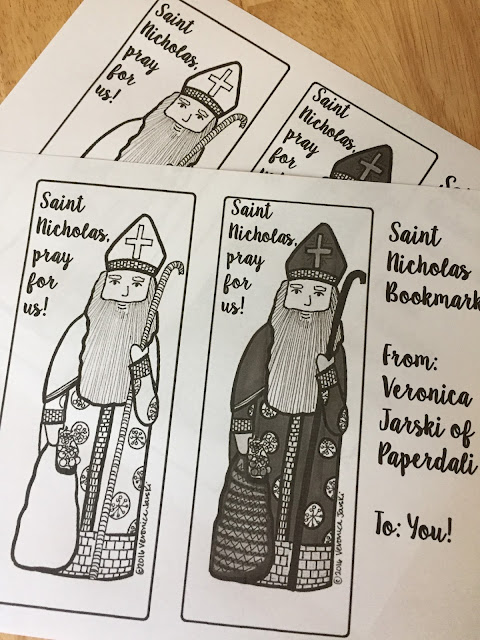 Saint
Nicholas,
pray
for
us!
Saint
Nicholas,
pray
for
Saint
Nicholas,
pray
for
us!
©2016 Veronica Jarski
Saint
Nicholas,
pray
for
us!
©2016 Veronica Jarski
Saint
Nicholas
Bookmark
From:
Veronica
Jarski of
Paperdali
To: You!